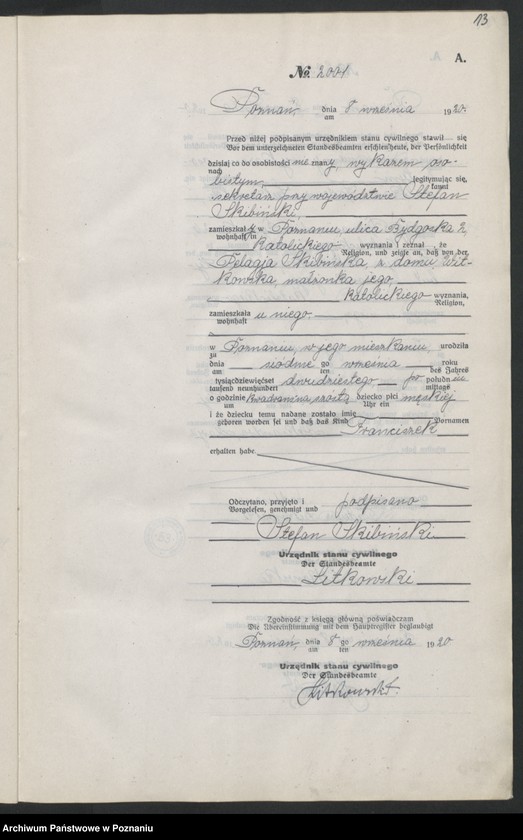 13
A.
No. 2001
Poznań, dnia 8 września 1920.
am
Przed niżej podpisanym urzędnikiem stanu cywilnego stawił się
Vor dem unterzeichneten Standesbeamten erschien heute, der Persönlichkeit
dzisiaj co do osobistości nieznany, wykazem oso-
nach
bistym, legitymując się,
kannt
sekretarz przy województwie Stefan
Skibiński,
zamieszkały w Poznaniu, ulica Bydgoska 2,
wohnhaft in
katolickiego wyznania i zeznał, że
Religion, und zeigte an, daß von der
Pelagja Skibińska, z domu Wit-
kowska, małżonka jego,
katolickiego wyznania,
Religion,
zamieszkała u niego,
wohnhaft
w Poznaniu, w jego mieszkaniu, urodziła
zu
dnia siódmego września roku
am ten des Jahres
tysiącdziewięćset dwudziestego po południu
tausend neunhundert mittags
o godzinie dziecko płci męskiej
um Uhr ein
i że dziecku temu nadane zostało imię
geboren worden sei und daß das Kind Vornamen
Franciszek
erhalten habe.
Odczytano, przyjęto i podpisano
Vorgelesen, genehmigt und
Stefan Skibiński
Urzędnik stanu cywilnego
Der Standesbeamte
Litkowski
Zgodność z księgą główną poświadczam
Die Übereinstimmung mit dem Hauptregister beglaubigt
Poznań, dnia 8 go września 1920
am ten
Urzędnik stanu cywilnego
Der Standesbeamte
Litkowski.
Archiwum Państwowe w Poznaniu